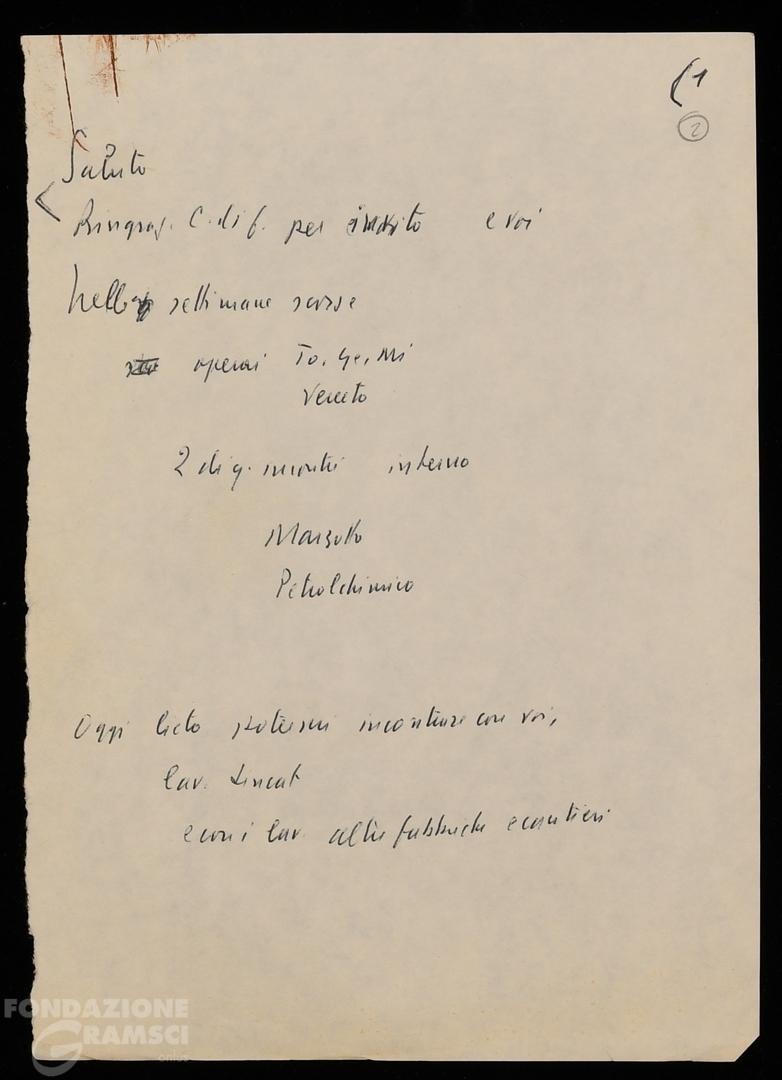 (1
2
Saluto
Ringraz. C. di f. per invito e voi
Nelle settimane scorse
operai To, Ge, Mi
Veneto
2 di q. incontri interno
Marzotto
Petrolchimico
Oggi lieto potermi incontrare con voi,
lav. Sincat
e con i lav. altre fabbriche e cantieri
FONDAZIONE
GRAMSCI
onlus